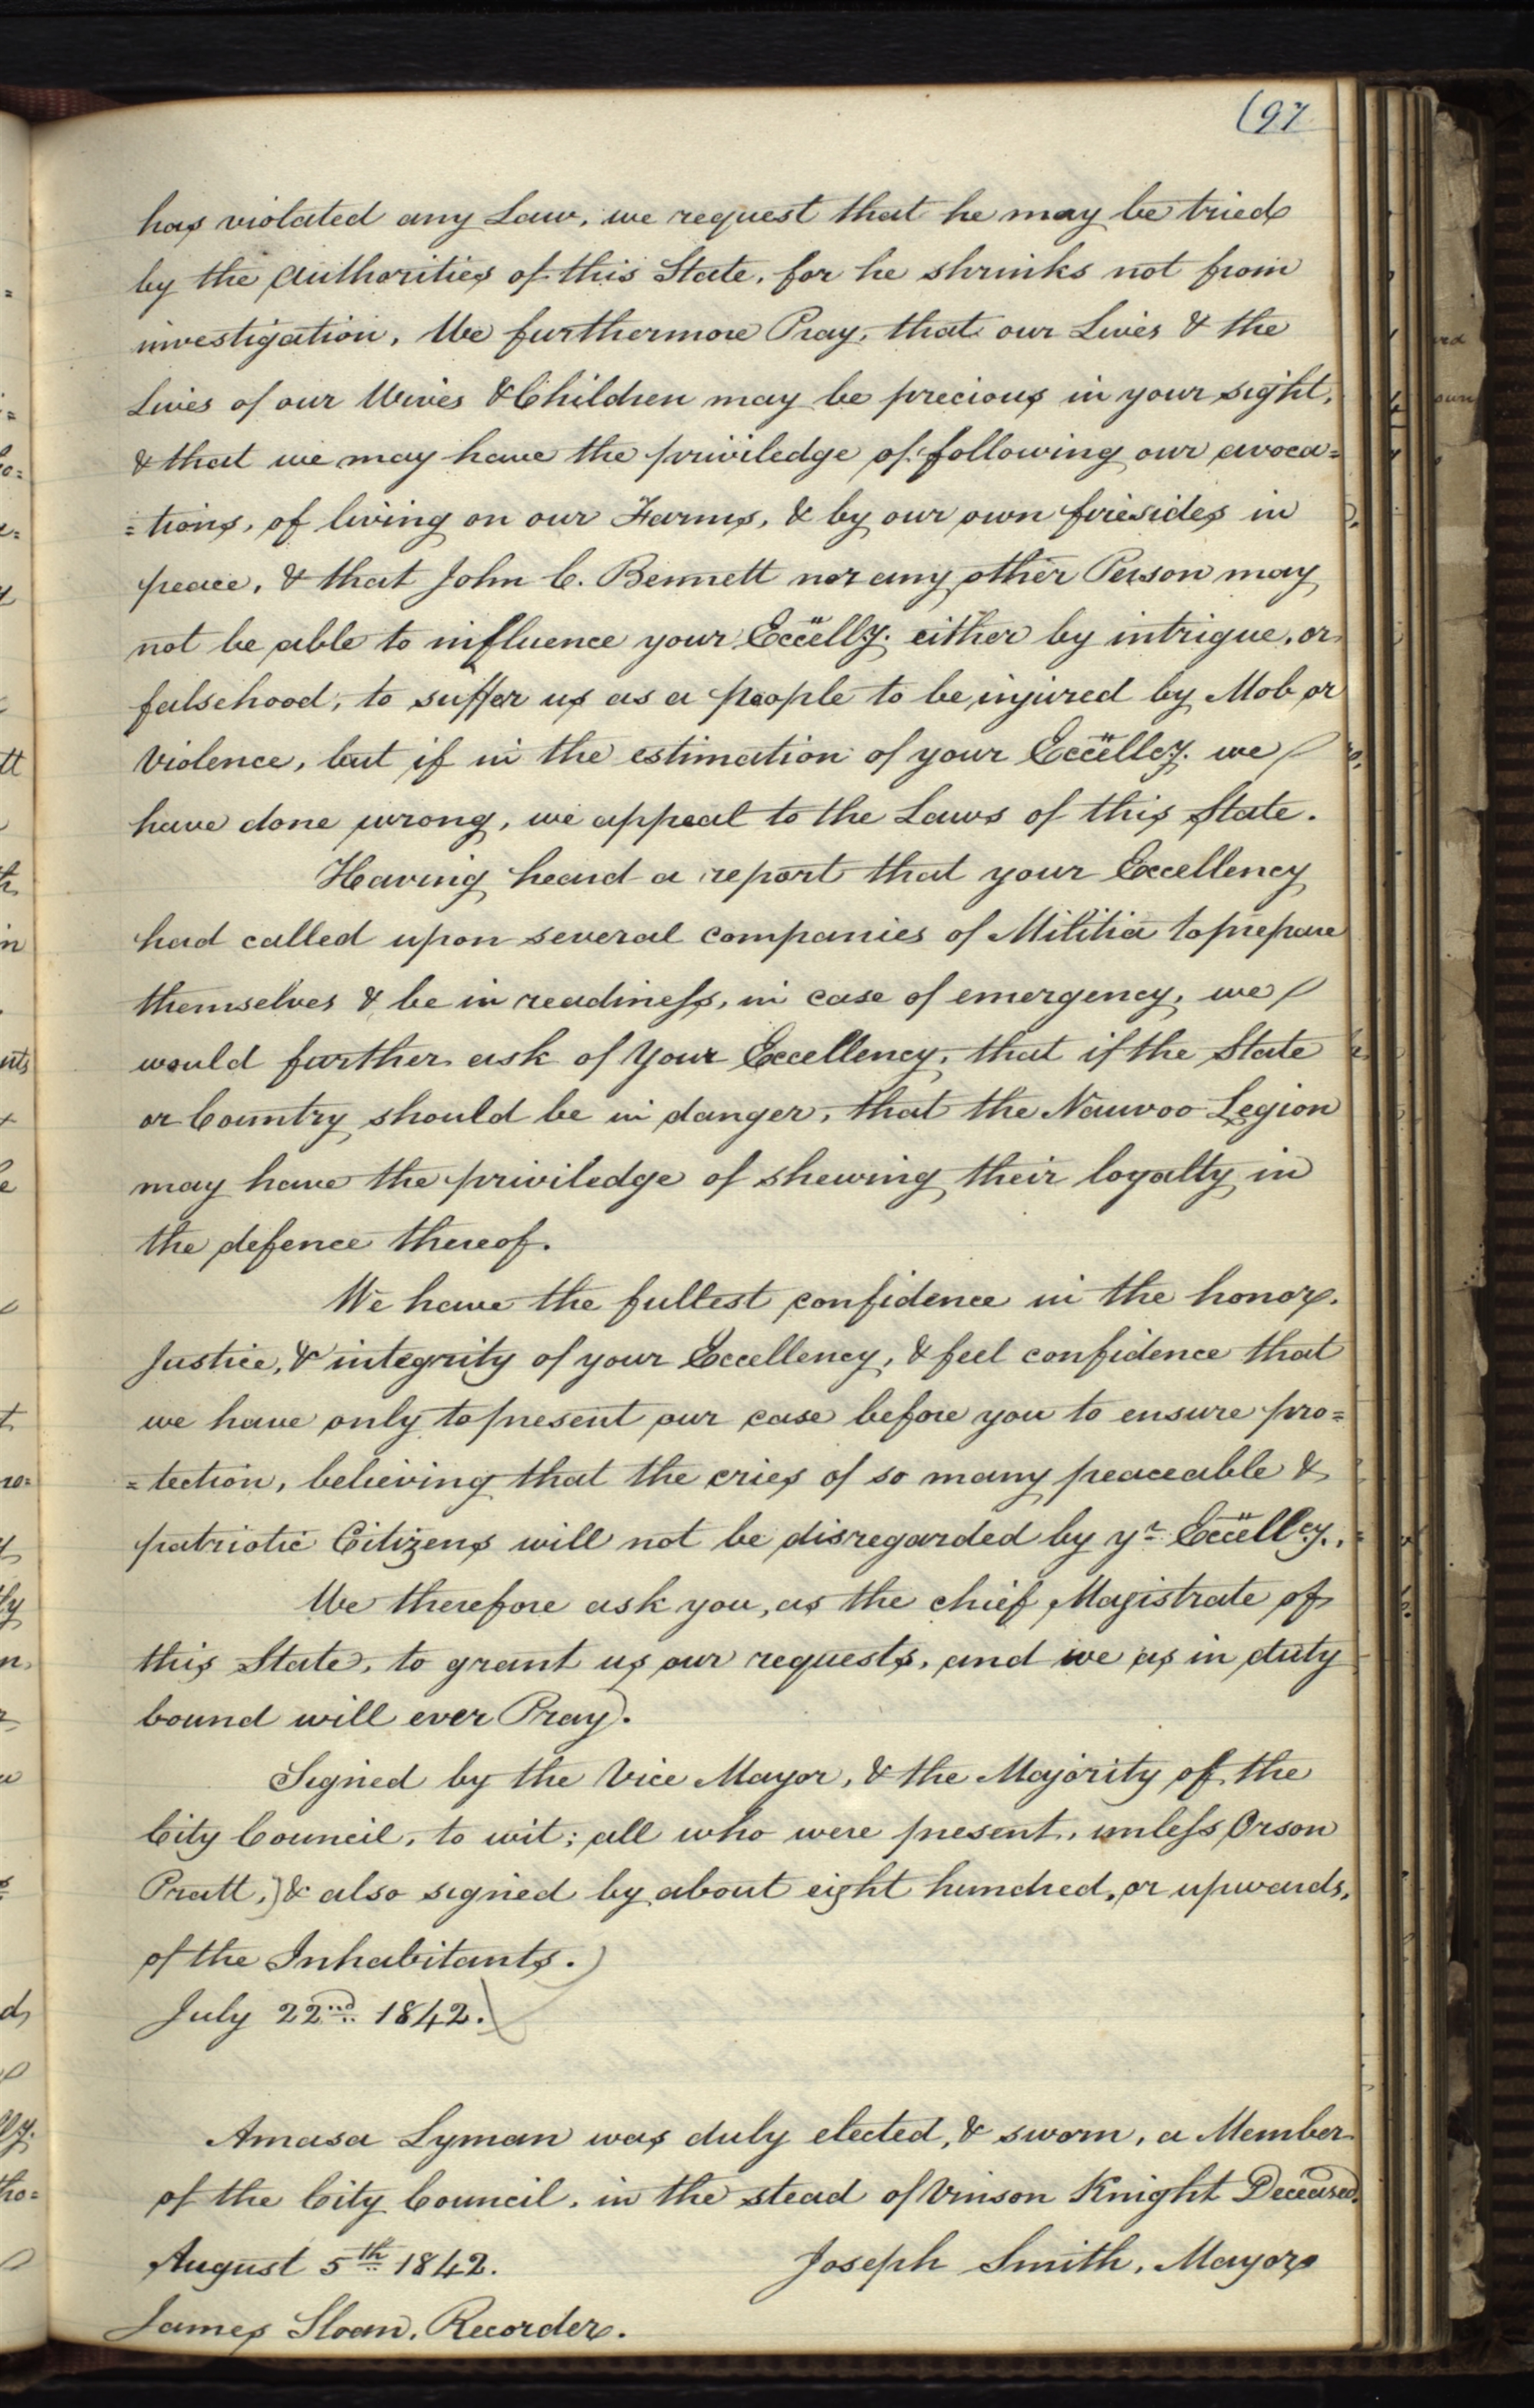 (97
has violated any Law, we request that he may be tried
by the Authorities of this State, for he shrinks not from
investigation, We furthermore Pray, that our Lives & the
Lives of our Wives & Children may be precious in your sight,
& that we may have the priviledge of following our avoca=
=tions, of living on our Farms, & by our own firesides in
peace, & that John C. Bennett nor any other Person may
not be able to influence your Excelly. either by intrigue, or
falsehood, to suffer us as a people to be injured by Mob or
Violence, but if in the estimation of your Excellcy. we
have done wrong, we appeal to the Laws of this State.
Having heard a report that your Excellency
had called upon several companies of Militia to prepare
themselves & be in readiness, in case of emergency, we
would further ask of Your Excellency, that if the State
or Country should be in danger, that the Nauvoo Legion
may have the priviledge of shewing their loyalty in
the defence thereof.
We have the fullest confidence in the honor,
Justice, & integrity of your Excellency, & feel confidence that
we have only to present our case before you to ensure pro=
=tection, believing that the cries of so many peaceable &
patriotic Citizens will not be disregarded by yr. Excellcy.,
We therefore ask you, as the chief Magistrate of
this State, to grant us our requests, and we as in duty
bound will ever Pray.
Signed by the Vice Mayor, & the Majority of the
City Council, to wit; all who were present, unless Orson
Pratt,) & also signed by about eight hundred, or upwards,
of the Inhabitants.)
July 22nd. 1842.
Amasa Lyman was duly elected, & sworn, a Member
of the City Council, in the stead of Vinson Knight Deceased.
August 5th 1842. Joseph Smith, Mayor
James Sloan, Recorder.